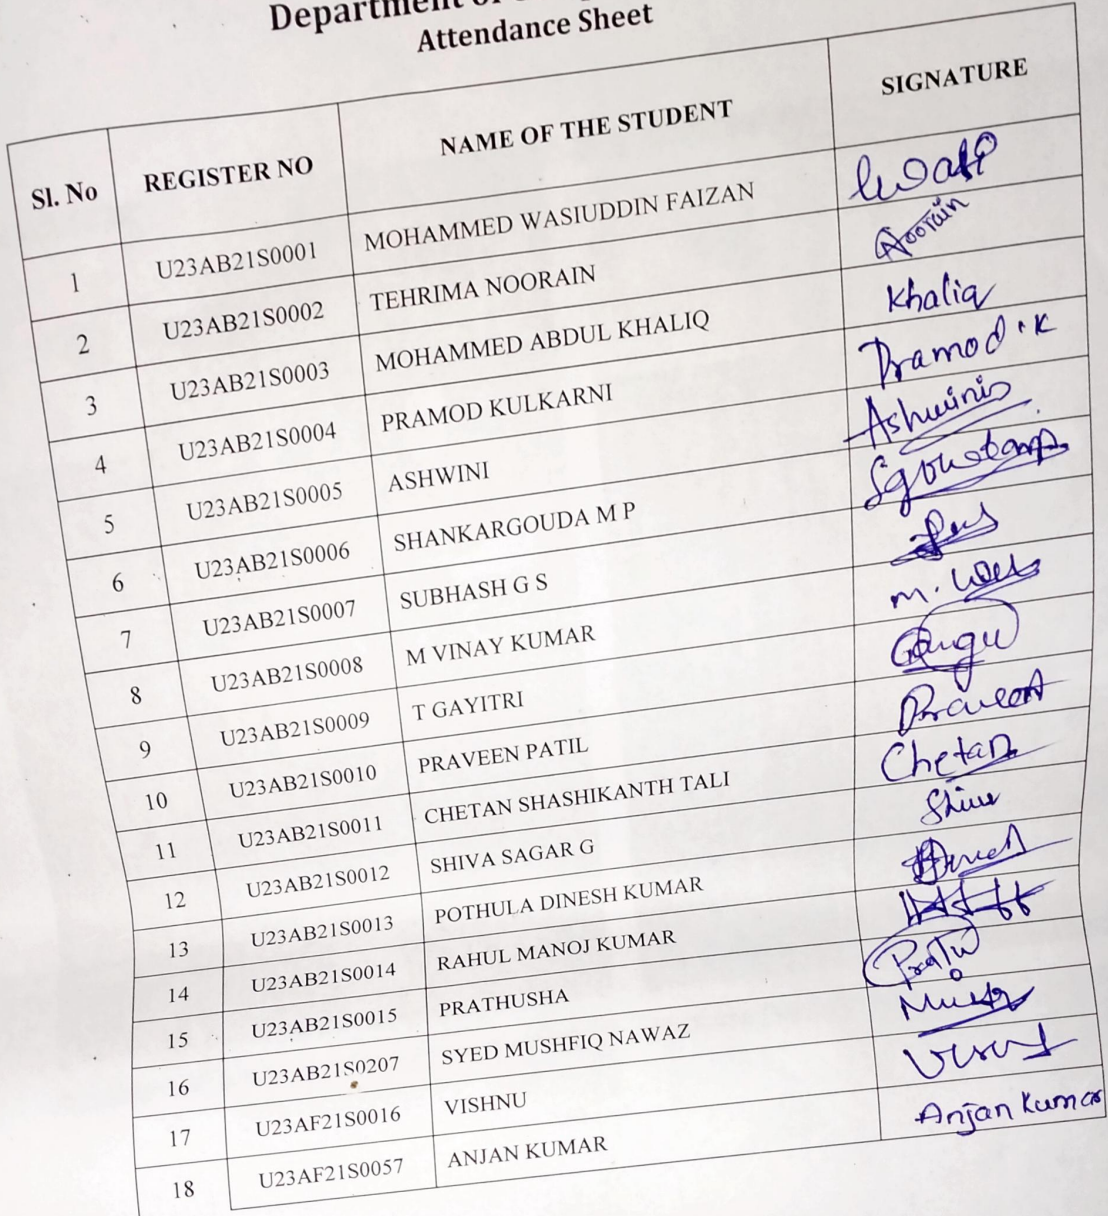 Department of
Attendance Sheet
Sl. No REGISTER NO NAME OF THE STUDENT SIGNATURE
1 U23AB21S0001 MOHAMMED WASIUDDIN FAIZAN Wasi
2 U23AB21S0002 TEHRIMA NOORAIN Noorain
3 U23AB21S0003 MOHAMMED ABDUL KHALIQ Khaliq
4 U23AB21S0004 PRAMOD KULKARNI Pramod.K
5 U23AB21S0005 ASHWINI Ashwini
6 U23AB21S0006 SHANKARGOUDA M P
7 U23AB21S0007 SUBHASH G S
8 U23AB21S0008 M VINAY KUMAR
9 U23AB21S0009 T GAYITRI
10 U23AB21S0010 PRAVEEN PATIL Praveen
11 U23AB21S0011 CHETAN SHASHIKANTH TALI Chetan
12 U23AB21S0012 SHIVA SAGAR G Shiva
13 U23AB21S0013 POTHULA DINESH KUMAR
14 U23AB21S0014 RAHUL MANOJ KUMAR
15 U23AB21S0015 PRATHUSHA
16 U23AB21S0207 SYED MUSHFIQ NAWAZ
17 U23AF21S0016 VISHNU
18 U23AF21S0057 ANJAN KUMAR Anjan Kumar